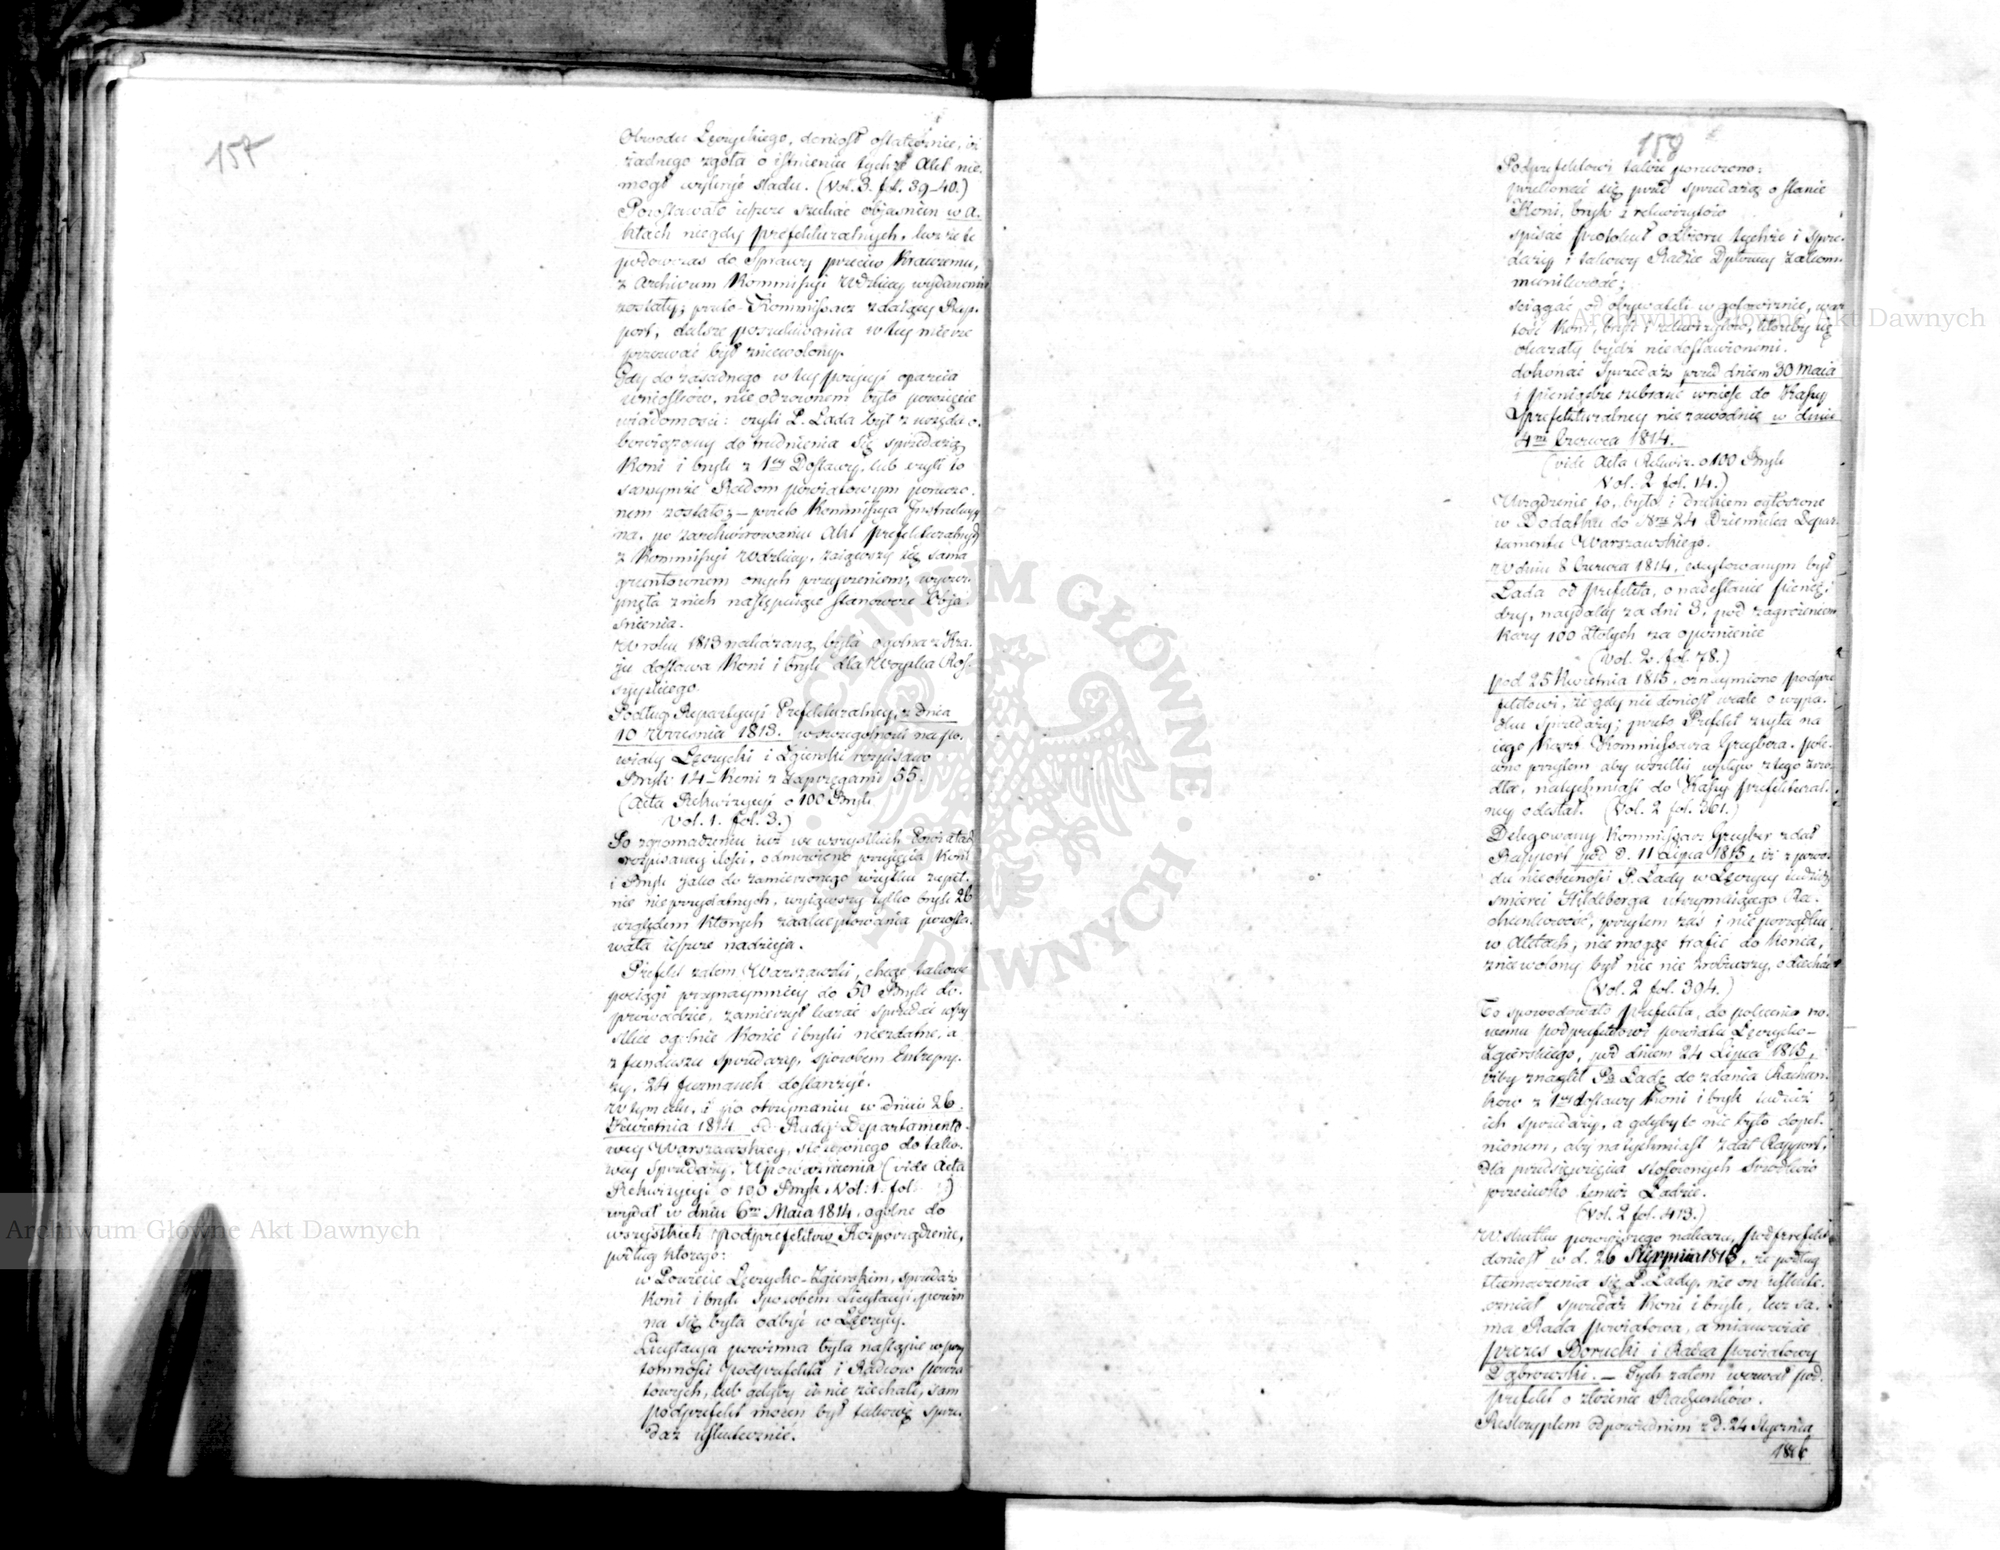 157
Obwodu Łęczyckiego, doniosł ostatecznie, iż
żadnego zgoła o istnieniu tychże Akt nie-
mogł wyśliedź śladu. (Vol. 3. fol. 39-40.)
Pozostawało ieszcze szukać objaśnień w A-
ktach niegdy prefekturalnych, lecz że te
podowczas do Sprawy przeciw Krawczemu,
z Archivum Kommissyi Wdzkiey wydanemi
zostały; przeto Kommissarz zdaiąc Rap-
port, dalsze poszukiwania w tey mierze
przerwać był zniewolony.
Gdy do zasadnego w tey pozycyi oparcia
wniosków, nie odzownem było powzięcie
wiadomości: czyli P. Łada był z urzędu o-
bowiązany do trudnienia się sprzedażą
Koni i bryk z 1ey Dostawy, lub czyli to
samymże Radom powiatowym poruczo-
nem zostało; – przeto Kommissya Instrukcyi-
na, po zarekwirowaniu Akt prefekturalnych
z Kommissyi Wdzkiey, zaiąwszy się sama
gruntownem onych przeyrzeniem, wyczer-
pnęła z nich następuiące stanowcze Obja-
śnienia.
W roku 1813 nakazaną była ogólna z Kra-
ju dostawa Koni i bryk dla Woyska Ros-
syyskiego.
Podług Repartycyi Prefekturalney, z dnia
10 Września 1813. w szczególności na po-
wiaty Łęczycki i Zgierski rozpisano
Bryk 14 – Koni z zaprzęgami 55.
(Acta Rekwizycyi o 100 Bryk
Vol. 1. fol. 3.)
Po zgromadzeniu już we wszystkich Powiatach
rozpisaney ilości, odmówiono przyięcia Koni
i Bryk jako do zamierzonego użytku zupeł-
nie nieprzydatnych, wyiąwszy tylko bryk 26
względem których zaakceptowania pozosta-
wała ieszcze nadzieja.
Prefekt zatem Warszawski, chcąc takowe
pociągi przynaymniey do 50 Bryk do-
prowadzić, zamierzył kazać sprzedać wszy-
stkie ogólnie Konie i bryki niezdatne, a
z funduszu sprzedaży, sposobem Entrepry-
zy, 24 furmanek dostarczyć.
W tym celu, i po otrzymaniu w dniu 26
Kwietnia 1814 od Rady Departamento-
wey Warszawskiey, ściągonego do tako-
wey Sprzedaży, Upoważnienia (vide Acta
Rekwizycyi o 100 Bryk, Vol: 1. fol: )
wydał w dniu 6m Maia 1814. ogólne do
wszystkich podprefektów Rozporządzenie,
podług którego:
w Powiecie Łęczycko-Zgierskim, sprzedaż
Koni i bryk sposobem Licytacyi powin-
na się była odbyć w Łęczycy.
Licytacya powinna była nastąpić w przy-
tomności podprefekta i Radców powia-
towych, lub gdyby ci nie ziechali, sam
podprefekt mocen był takowę sprze-
daż uskutecznić.
158
Podprefektowi także poruczono:
przekonać się przed sprzedażą o stanie
Koni, bryk i rekwizytów
spisać protokuł odbioru tychże i sprze-
daży i takowy Radzie Dptowey zakom-
munikować;
ściągać od obywateli w gotowiznie, war-
tość Koni, bryk i rekwizytów, któreby się
okazały bydź niedostawionemi.
dokonać Sprzedaż przed dniem 30 Maia
i pieniądze zebrane wnieść do Kassy
Prefekturalney niezawodnie w dniu
4m Czerwca 1814.
(vide Acta Rekwiz. o 100 Bryk
Vol. 2 fol. 14.)
Urządzenie to, było i drukiem ogłoszone
w Dodatku do Nru 24 Dziennika Depar-
tamentu Warszawskiego.
W dniu 8 Czerwca 1814, excytowanym był
Łada od prefekta, o nadesłanie pienię-
dzy, naydaley za dni 3, pod zagrożeniem
Kary 100 Złotych za opoznienie
(Vol. 2. fol. 78.)
pod 25 Kwietnia 1815. oznaymiono podpre-
fektowi, że gdy nie doniosł wcale o wypa-
dku Sprzedaży; przeto Prefekt zsyła na
iego Koszt Kommissarza Greybera. pole-
cono przytem aby wszelki wpływ z tego zrzo-
dła, natychmiast do Kassy prefektural-
ney odesłał. (Vol. 2 fol. 361.)
Delegowany Kommissarz Greyber zdał
Rapport pod d. 11 Lipca 1815, iż z powo-
du nieobecności P. Łady w Łęczycy tudzież
śmierci Hildeberga utrzymuiącego Ra-
chunkowość, przytem zaś i nieporządku
w Aktach, nie mogąc trafić do końca,
zniewolony był nic nie zrobiwszy, odiechać
(Vol. 2 fol. 394.)
To spowodowało prefekta, do polecenia no-
wemu podprefektowi powiatu Łęczycko-
Zgierskiego, pod dniem 24 Lipca 1815,
iżby znaglił Pa Ładę do zdania Rachun-
ków z 1ey dostawy Koni i bryk tudzież
ich sprzedaży, a gdyby to nie było dopeł-
nionem, aby natychmiast zdał Rapport,
dla przedsięwzięcia stosownych środków
przeciwko temuż Ładzie.
(Vol. 2 fol. 413.)
W skutku powyższego nakazu, podprefekt
doniosł w d. 26 Sierpnia 1815, że podług
tłumaczenia się P. Łady, nie on uskute-
czniał sprzedaż Koni i bryk, lecz sa-
ma Rada powiatowa, a mianowicie
prezes Borucki i Radca powiatowy
Dąbrowski. – Tych zatem wezwał pod-
prefekt o złożenie Rachunków.
Reskryptem odpowiednim z d. 24 Stycznia
1816
Archiwum Główne Akt Dawnych
Archiwum Główne Akt Dawnych
ARCHIWUM GŁÓWNE
AKT DAWNYCH